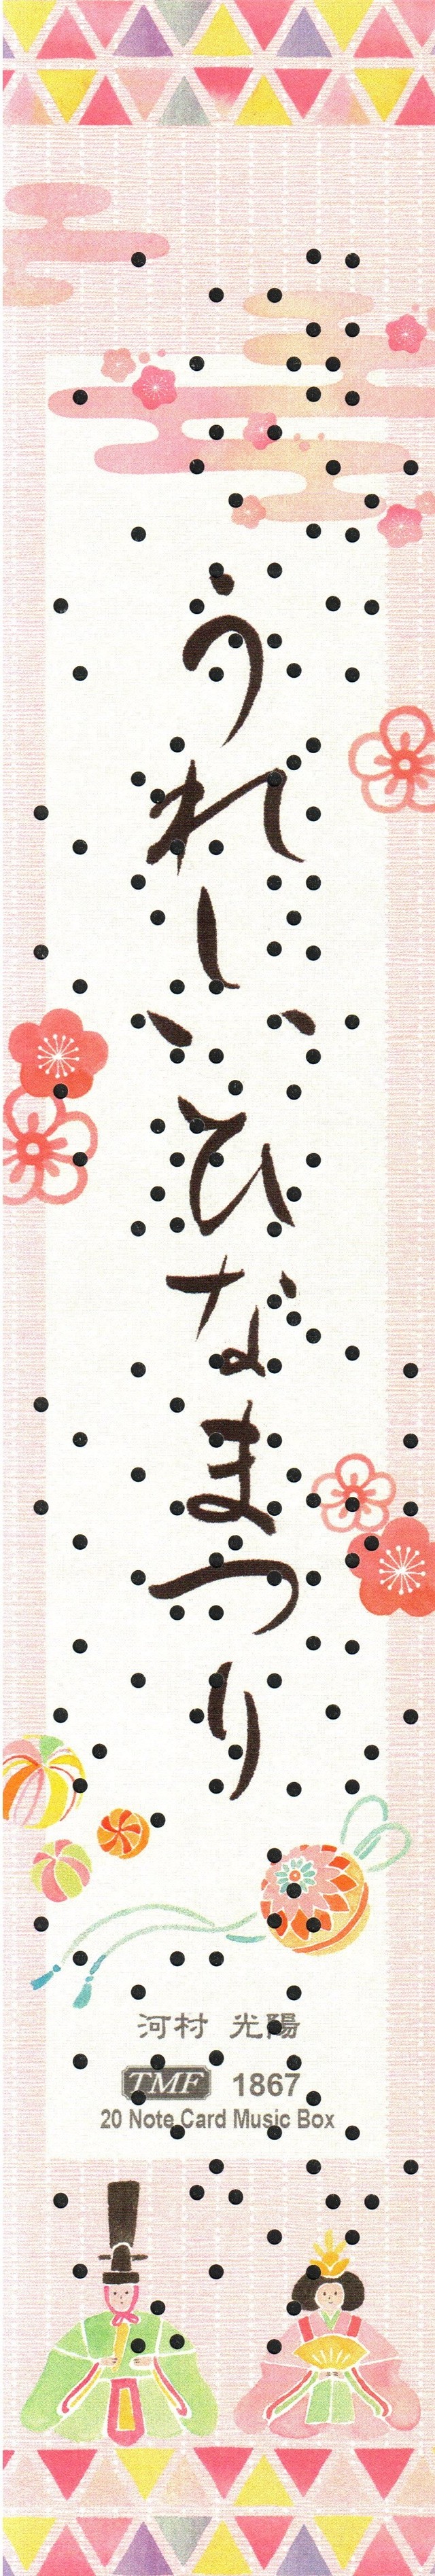 うれしいひなまつり
河村 光陽
TMF 1867
20 Note Card Music Box